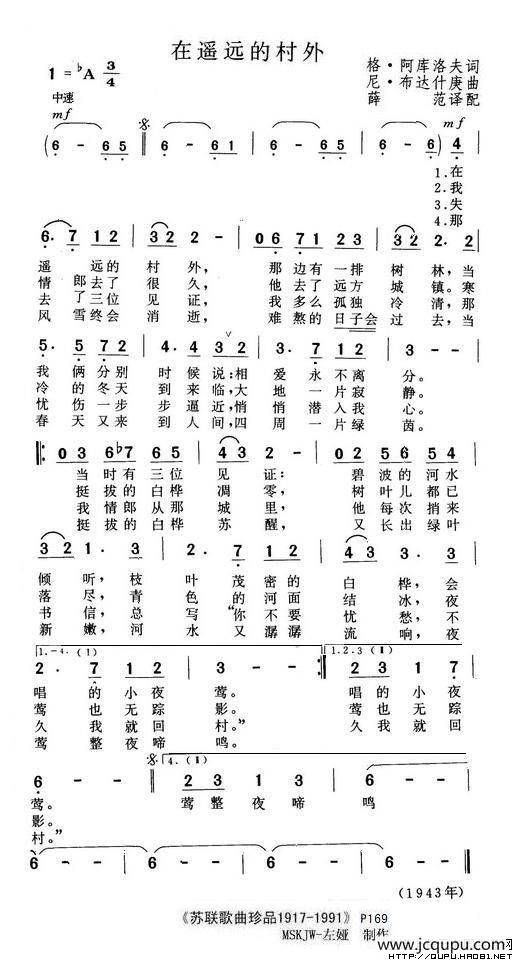 在遥远的村外
1=♭A 3/4
格·阿库洛夫词
尼·布达什庚曲
薛 范译配
中速
mf
(6 - 65 ‖ 6 - - | 6 - 61 | 6 - - | 6 - 6) 4
mf
1.在
2.我
3.失
4.那
6. 7 12 | 32 2 - | 06 71 23 | 32 2. 2
遥 远的 村 外， 那边有一排 树 林，当
情 郎去了 很 久， 他去了远方 城 镇。寒
去 了三位 见 证， 我多么孤独 冷 清，那
风 雪终会 消 逝， 难熬的日子会 过 去，当
5. 5 7 6 | 4. 4 32 | 3. 7 12 | 3 - -
我 俩分别 时 候说:相 爱 永不离 分。
冷 的冬天 到 来临，大 地 一片寂 静。
忧 伤一步 步 逼近，悄 悄 潜入我 心。
春 天又来 到 人间，四 周 一片绿 茵。
03 6♭7 65 | 43 2 - | 02 65 54
当时有三位 见 证: 碧波的河水
挺拔的白桦 凋 零， 树叶儿都已
我情郎从那 城 里， 他每次捎回
挺拔的白桦 苏 醒， 又长出绿叶
32 1. 7 | 2. 7 12 | 43 3. 3
倾 听，枝 叶 茂密的 白 桦，会
落 尽，青 色 的河面 结 冰，夜
书 信，总 写 “你不要 忧 愁，不
新 嫩，河 水 又潺潺 流 响，夜
1.-4.(1)
1.2.3(1)
2. 7 12 | 3 - - | 2 3 1 7
唱 的小夜 莺。 唱的小夜
莺 也无踪 影。 莺也无踪
久 我就回 村。” 久我就回
莺 整夜啼 鸣。
4.(1)
6 - - | 2 3 1 3 | 6 - -
莺。 莺整夜啼 鸣
影。
村。”
6 - - | 6 - - | 6 - - | 6 - - | 6 - -
(1943年)
《苏联歌曲珍品1917-1991》 P169
MSKJW-左娅 制作
www.jcqupu.com
HTTP://QUPU.HAO81.NET